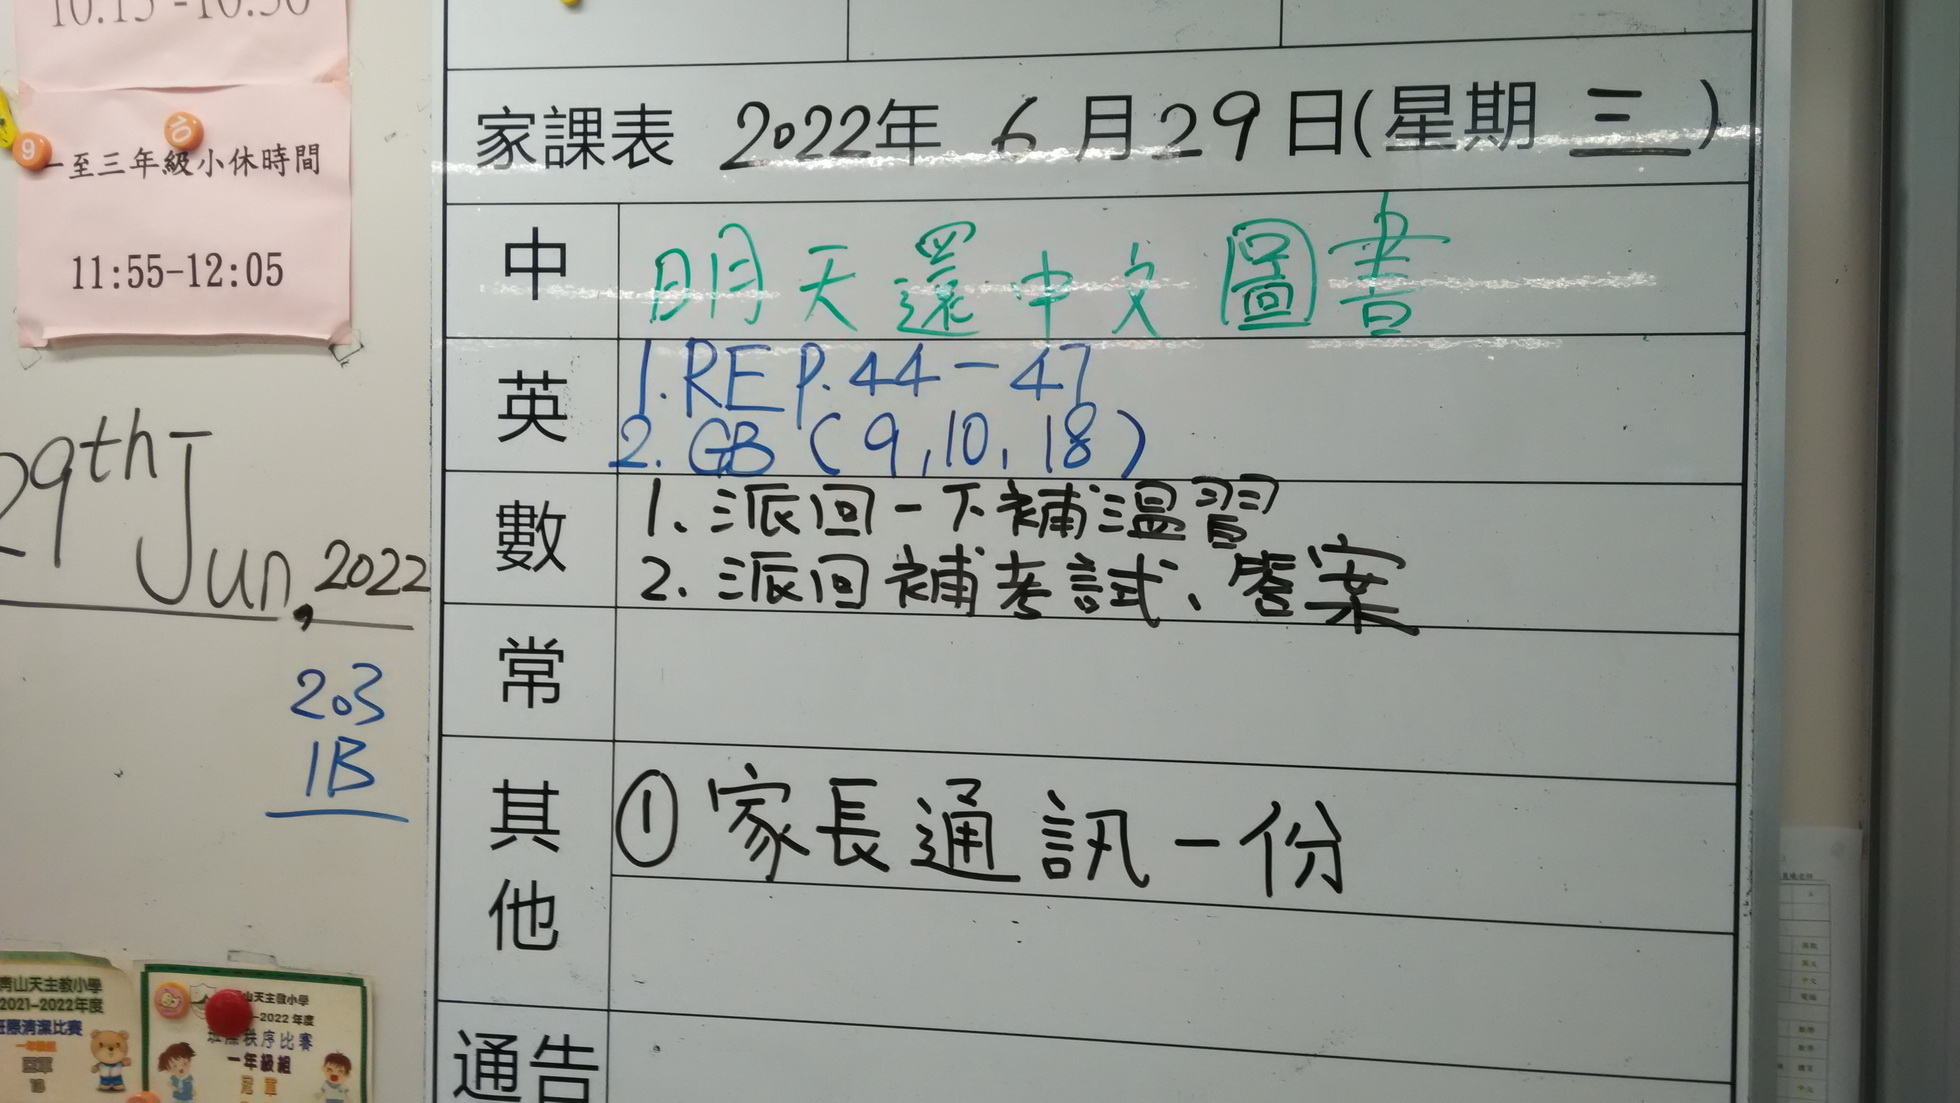 10:15-10:30
一至三年級小休時間
11:55-12:05
29th Jun, 2022
203
1B
家課表 2022年 6月29日(星期三)
中
明天還中文圖書
英
1. RE P.44-47
2. GB (9,10,18)
數
1. 派回一下補溫習
2. 派回補考試、答案
常
其他
① 家長通訊一份
通告
青山天主教小學
2021-2022年度
班際清潔比賽
一年級組
冠軍
1B
山天主教小學
-2022 年度
秩序比賽
一年級組
冠軍
9
10